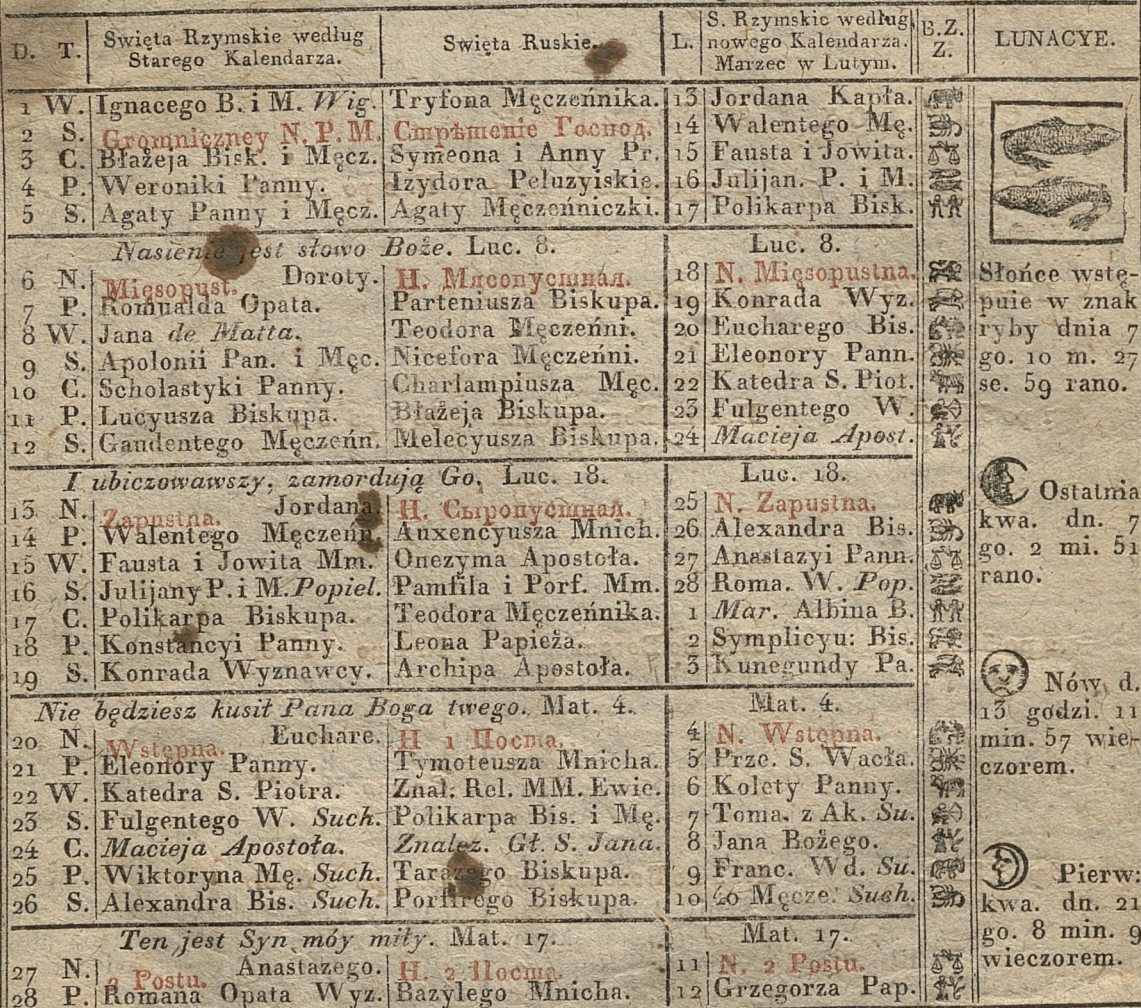 D. T. Swięta Rzymskie według Starego Kalendarza. Swięta Ruskie. L. S. Rzymskie według nowego Kalendarza. Marzec w Lutym. B.Z. Z. LUNACYE.
1 W. Ignacego B. i M. Wig. Tryfona Męczeńnika. 13 Jordana Kapła.
2 S. Gromniczney N. P. M. Стрѣтеніе Господ. 14 Walentego Mę.
3 C. Błażeja Bisk. i Męcz. Symeona i Anny Pr. 15 Fausta i Jowita.
4 P. Weroniki Panny. Izydora Peluzyiskie. 16 Julijan. P. i M.
5 S. Agaty Panny i Męcz. Agaty Męczeńniczki. 17 Polikarpa Bisk.
Nasienie jest słowo Boże. Luc. 8. Luc. 8.
6 N. Mięsopust. Doroty. Н. Мясопустная. 18 N. Mięsopustna.
7 P. Romualda Opata. Parteniusza Biskupa. 19 Konrada Wyz.
8 W. Jana de Matta. Teodora Męczeńni. 20 Eucharego Bis.
9 S. Apolonii Pan. i Męc. Nicefora Męczeńni. 21 Eleonory Pann.
10 C. Scholastyki Panny. Charlampiusza Męc. 22 Katedra S. Piot.
11 P. Lucyusza Biskupa. Błażeja Biskupa. 23 Fulgentego W.
12 S. Gaudentego Męczeńn. Melecyusza Biskupa. 24 Macieja Apost.
I ubiczowawszy, zamordują Go. Luc. 18. Luc. 18.
13 N. Zapustna. Jordana. Н. Сыропустная. 25 N. Zapustna.
14 P. Walentego Męczeńn. Auxencyusza Mnich. 26 Alexandra Bis.
15 W. Fausta i Jowita Mm. Onezyma Apostoła. 27 Anastazyi Pann.
16 S. Julijany P. i M. Popiel. Pamfila i Porf. Mm. 28 Roma. W. Pop.
17 C. Polikarpa Biskupa. Teodora Męczeńnika. 1 Mar. Albina B.
18 P. Konstancyi Panny. Leona Papieża. 2 Symplicyu: Bis.
19 S. Konrada Wyznawcy. Archipa Apostoła. 3 Kunegundy Pa.
Nie będziesz kusił Pana Boga twego. Mat. 4. Mat. 4.
20 N. Wstępna. Euchare. Н 1 Поста. 4 N. Wstępna.
21 P. Eleonory Panny. Tymoteusza Mnicha. 5 Prze. S. Wacła.
22 W. Katedra S. Piotra. Znal. Rel. MM. Ewic. 6 Kolety Panny.
23 S. Fulgentego W. Such. Polikarpa Bis. i Mę. 7 Toma. z Ak. Su.
24 C. Macieja Apostoła. Znalez. Gł. S. Jana. 8 Jana Bożego.
25 P. Wiktoryna Mę. Such. Tarazego Biskupa. 9 Franc. Wd. Su.
26 S. Alexandra Bis. Such. Porfirego Biskupa. 10 40 Męcze. Such.
Ten jest Syn móy miły. Mat. 17. Mat. 17.
27 N. 2 Postu. Anastazego. Н. 2 Поста. 11 N. 2 Postu.
28 P. Romana Opata Wyz. Bazylego Mnicha. 12 Grzegorza Pap.
Słońce wstę-
puie w znak
ryby dnia 7
go. 10 m. 27
se. 59 rano.
Ostatnia
kwa. dn. 7
go. 2 mi. 51
rano.
Nów d.
13 godzi. 11
min. 57 wie-
czorem.
Pierw:
kwa. dn. 21
go. 8 min. 9
wieczorem.